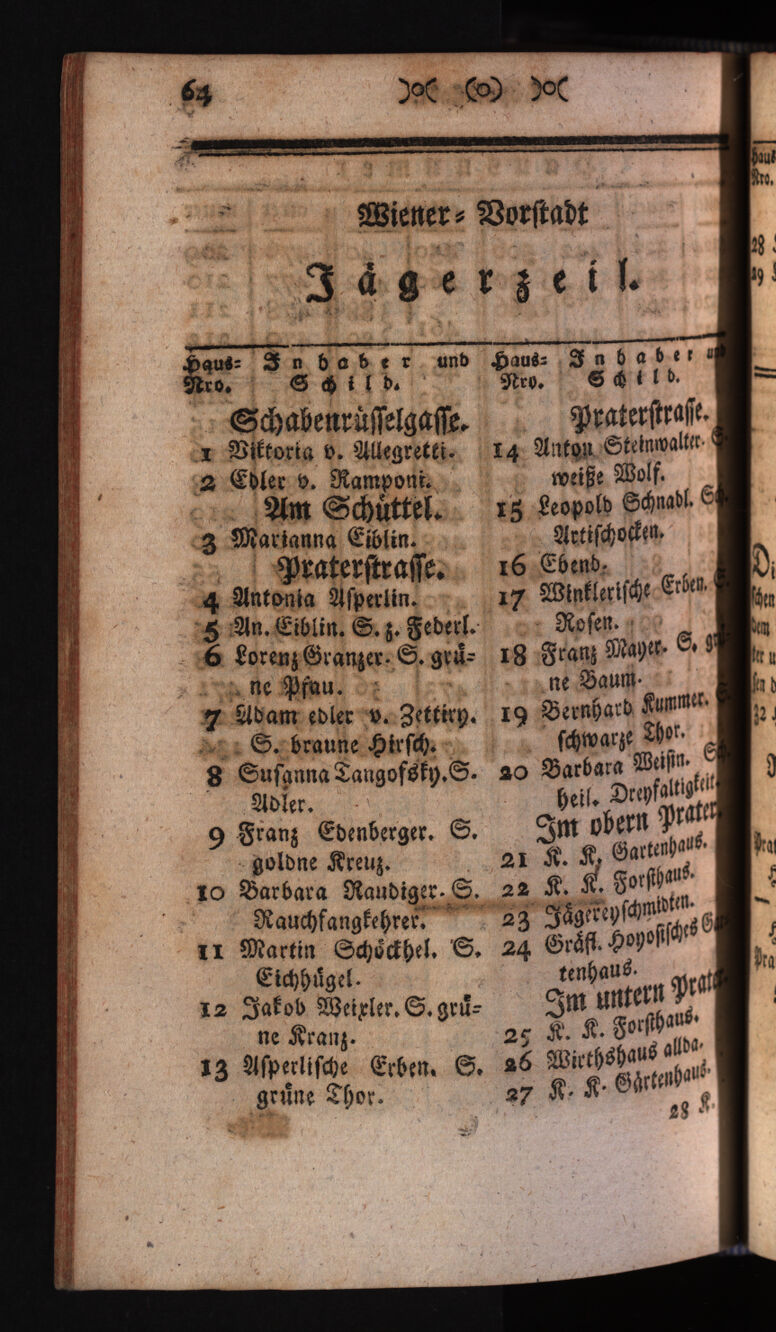 64 )o( (o) )o(
Wiener= Vorstadt
Jägerzeil.
Haus= Inhaber und
Nro. Schild.
Schabenrüsselgasse.
1 Viktoria v. Allegretti.
2 Edler v. Ramponi.
Am Schüttel.
3 Marianna Eiblin.
Praterstrasse.
4 Antonia Asperlin.
5 An. Eiblin. S. z. Federl.
6 Lorenz Granzer. S. grü=
ne Pfau.
7 Adam edler v. Zettiry.
S. braune Hirsch.
8 Susanna Tangofsky. S.
Adler.
9 Franz Ebenberger. S.
goldne Kreuz.
10 Barbara Raudiger. S.
Rauchfangkehrer.
11 Martin Schöckhel. S.
Eichhügel.
12 Jakob Weixler. S. grü=
ne Kranz.
13 Asperlische Erben. S.
grüne Thor.
Haus= Inhaber
Nro. Schild.
Praterstrasse.
14 Anton Steinwalter.
weiße Wolf.
15 Leopold Schnabl.
Artischocken.
16 Ebend.
17 Winklerische Erben.
Rosen.
18 Franz Mayer. S.
ne Baum.
19 Bernhard Kummer.
schwarze Thor.
20 Barbara Weisin.
heil. Dreyfaltigkeit
Im obern Prater
21 K. K. Gartenhaus.
22 K. K. Forsthaus.
23 Jägereyschmidten.
24 Gräfl. Hoyosisches Gar
tenhaus.
Im untern Prater
25 K. K. Forsthaus.
26 Wirthshaus allda.
27 K. K. Gärtenhaus.
28 K.